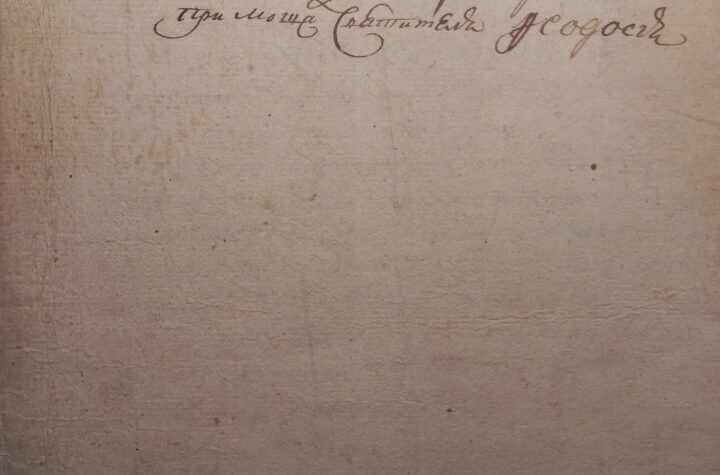 При мощах Святителя Ѳеодосія